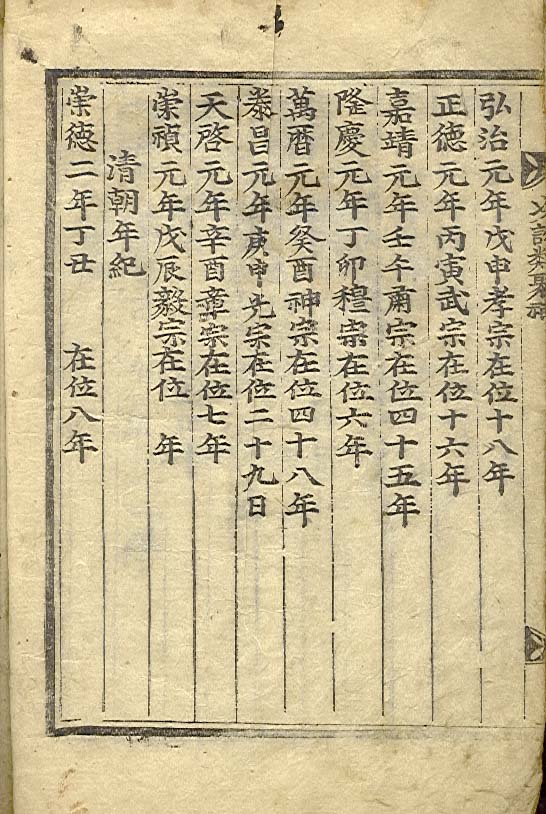 弘治元年戊申孝宗在位十八年
正徳元年丙寅武宗在位十六年
嘉靖元年壬午肅宗在位四十五年
隆慶元年丁卯穆宗在位六年
萬曆元年癸酉神宗在位四十八年
泰昌元年庚申光宗在位二十九日
天啓元年辛酉章宗在位七年
崇禎元年戊辰毅宗在位　年
清朝年紀
崇徳二年丁丑　在位八年